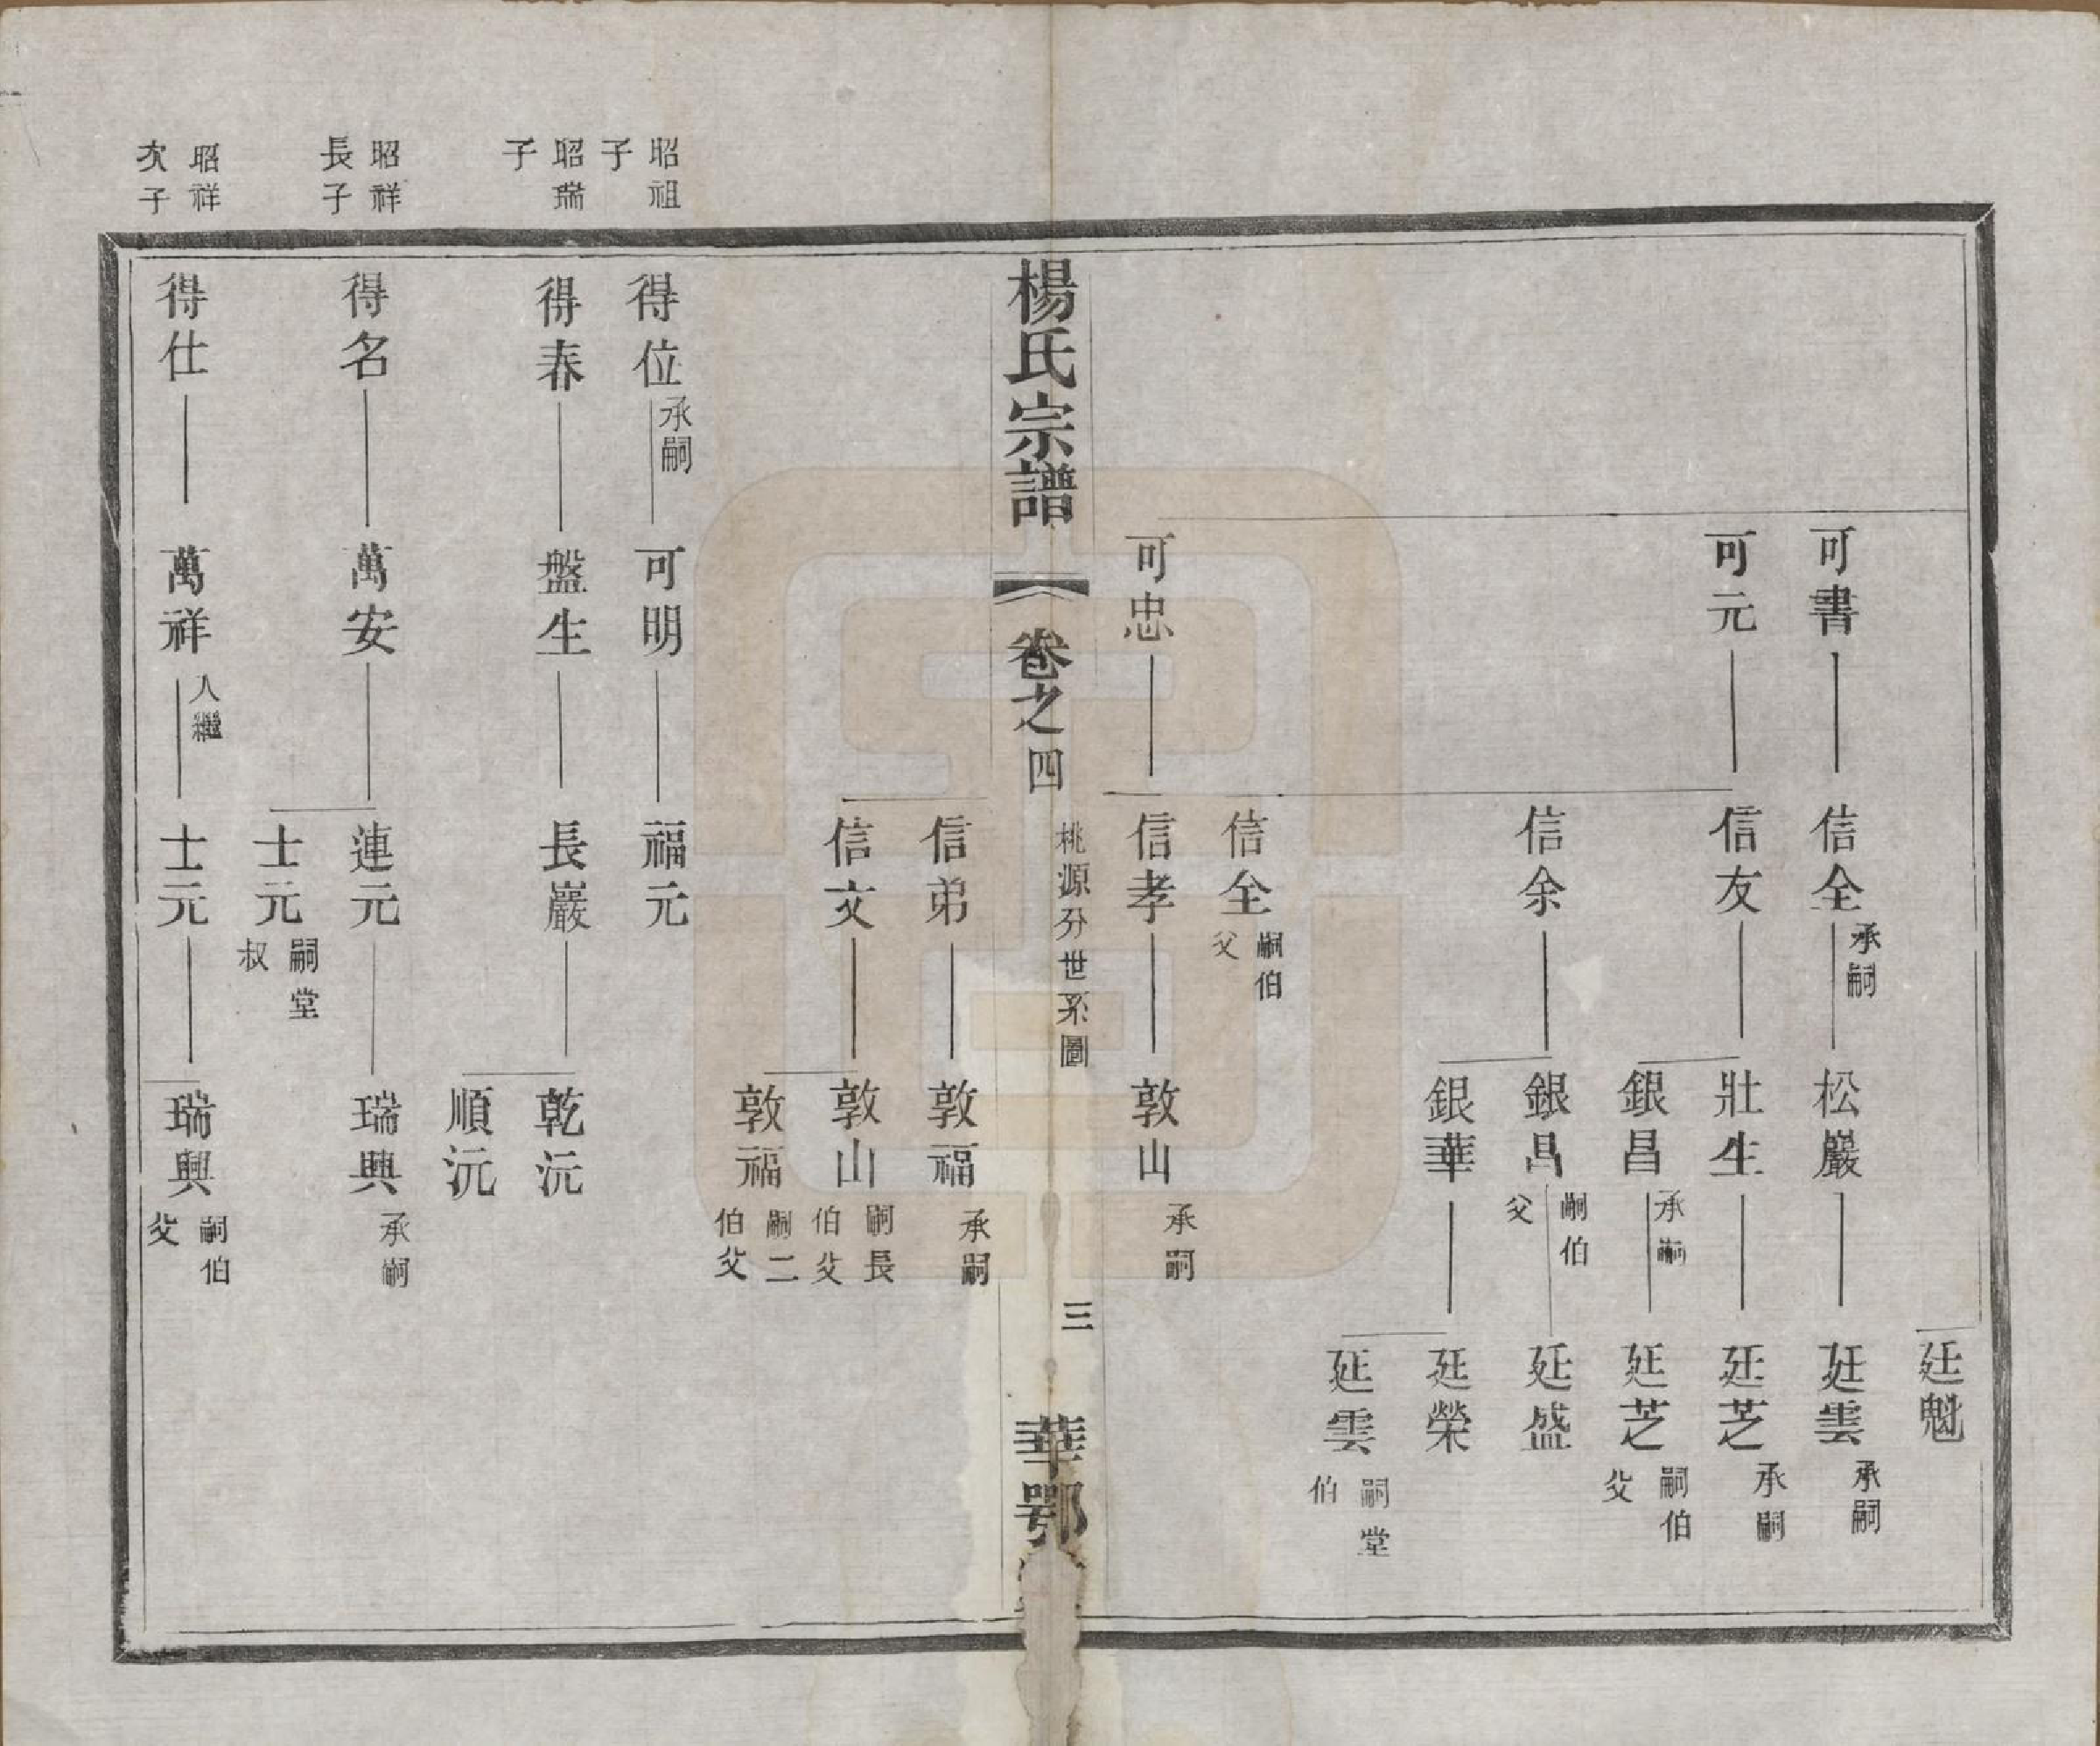 廷魁
可書 信全 承嗣 松巖 廷雲 承嗣
可元 信友 壯生 廷芝 承嗣
銀昌 承嗣 廷芝 嗣伯父
信余 銀昌 嗣伯父 廷盛
銀華 廷榮
廷雲 嗣堂伯
信全 嗣伯父
可忠 信孝 敦山 承嗣
楊氏宗譜 卷之四 桃源分世系圖 三 華鄂
信弟 敦福 承嗣
信文 敦山 嗣長伯父
敦福 嗣二伯父
昭祖子 得位 承嗣 可明 福元
昭瑞子 得春 盤生 長巖 乾沅
順沅
昭祥長子 得名 萬安 連元 瑞興 承嗣
士元 嗣堂叔
昭祥次子 得仕 萬祥 入繼 士元 瑞興 嗣伯父